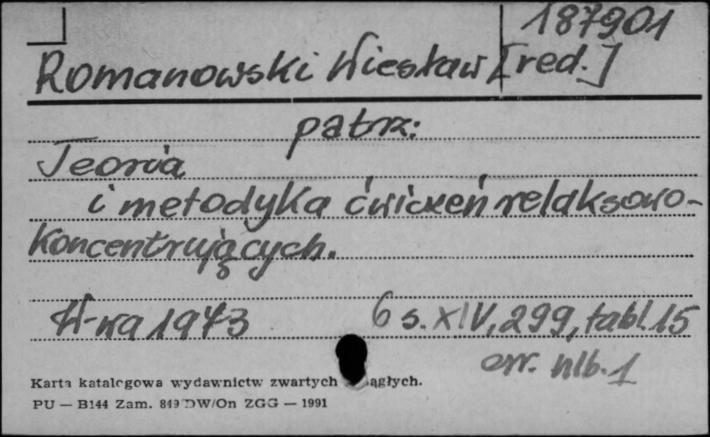 187901
Romanowski Wiesław [red.]
patrz:
Teoria
i metodyka ćwiczeń relaksowo-
koncentrujących.
W-wa 1973 6 s. XIV, 299, tabl. 15
err. nlb. 1
Karta katalogowa wydawnictw zwartych ciągłych.
PU — B144 Zam. 849 DW/On ZGG — 1991